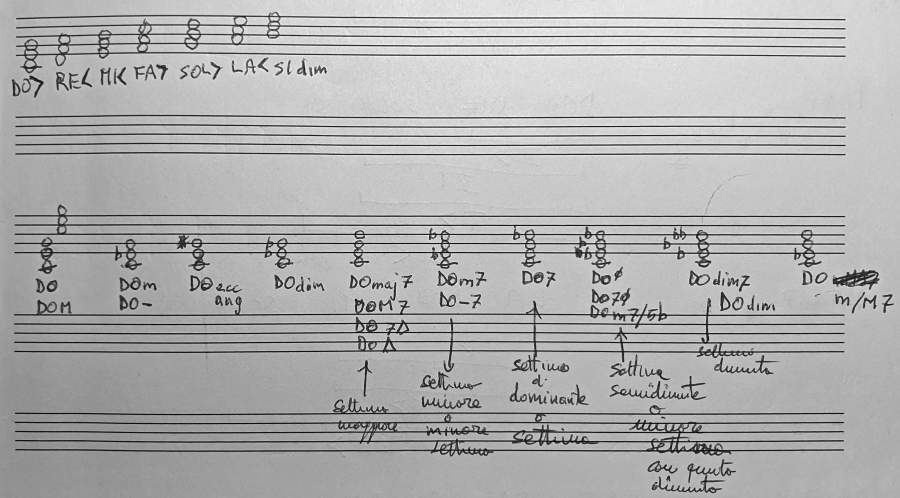 DO> RE< MI< FA> SOL> LA< SI dim
DO DOm DO ecc DO dim DOmaj7 DOm7 DO7 DOø DO dim7 DO
DOM DO- DOM7 DO-7 DO7ø DO dim m/M7
DO 7Δ DOm7/5b
DO Δ
settima settima settima settima settima
maggiore minore di semidiminuita diminuita
o dominante o
minore o minore
settima settima settima
con quinta
diminuita